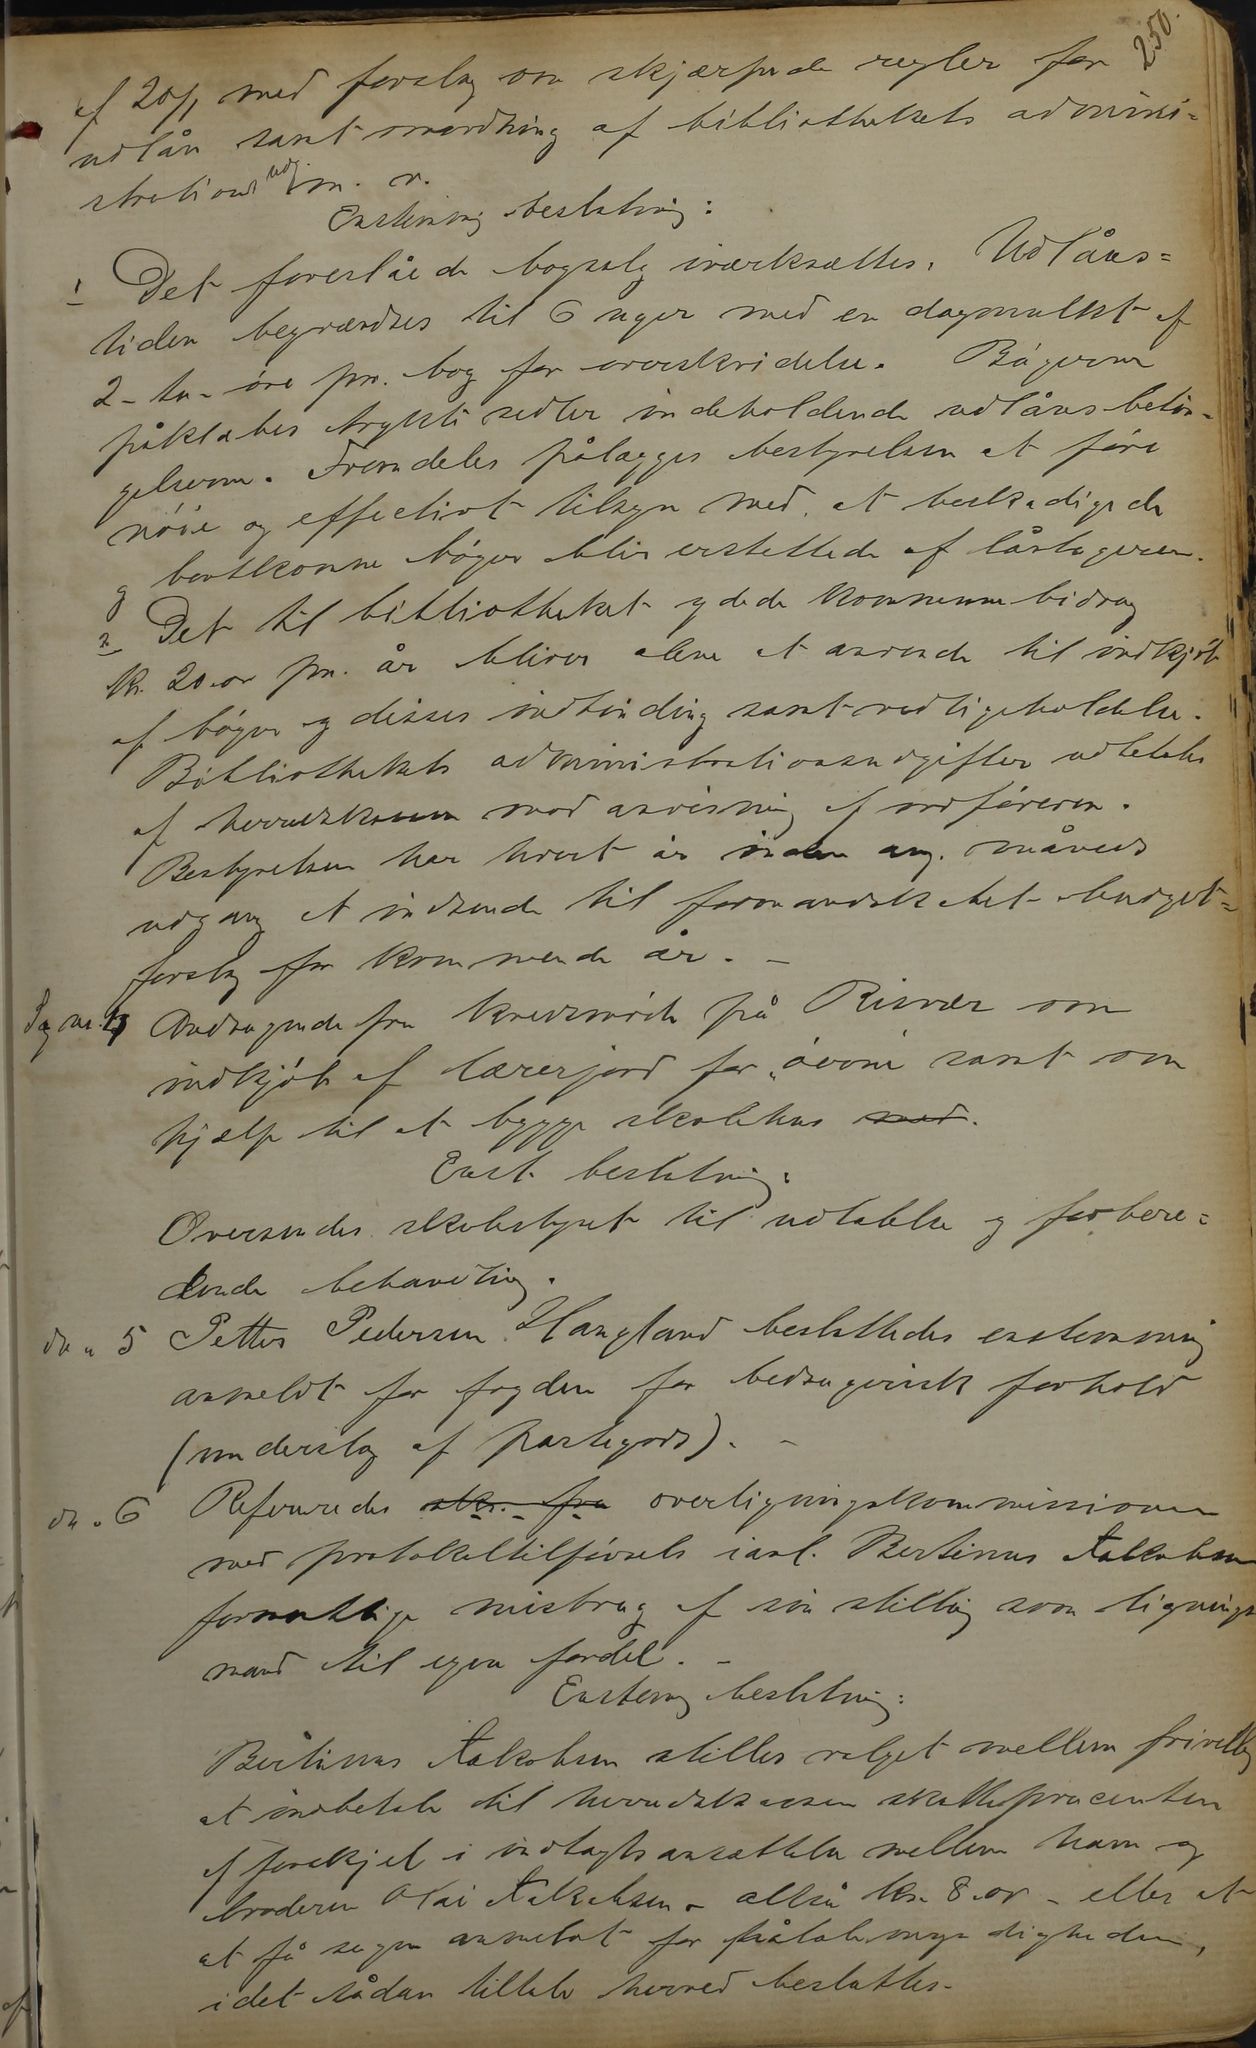 250.
af 20/1 med forslag om skjærpede regler for
udlån samt omordning af bibliothekets admini=
strations udg. m. v.
Enstemmig beslutning:
1 Det foreslåede bogsalg iværksættes. Udlåns=
tiden begrændses til 6 uger med en dagmulkt af
2 - to - öre pr. bog for overskridelse. Bögerne
påklæbes trykte sedler indeholdende udlånsbetin=
gelserne. Fremdeles pålægges bestyrelsen at före
nöie og effectivt tilsyn med, at beskadigede
og bortkomne böger blir erstattede af låntageren.
2 Det til bibliotheket ydede kommunebidrag
kr. 20.00 pr. år bliver alene at anvende til indkjöb
af böger og disses indbinding samt vedligeholdelse.
Bibliothekets administrationsudgifter udbetales
af herredskassen mod anvisning af ordföreren.
Bestyrelsen har hvert år inden aug. måneds
udgang at indsende til formandskabet budget=
forslag for kommende år. -
Sag nr. 4 Andragende fra kredsmöde på Risvær om
indkjöb af lærerjord for "övre samt om
hjælp til at bygge skolehus med.
Enst. beslutning:
Oversendes skolestyret til udtalelse og forbere=
dende behandling.
do " 5 Petter Pedersen Haugland besluttedes enstemmig
anmeldt for fogden for bedragerisk forhold
(underslag af pantegods). -
do " 6 Refereredes skr. fra overligningskommissionen
med protokoltilförsels ianl. Bertinus Jakobsen
formentlige misbrug af sin stilling som lignings
mand til egen fordel. -
Enstemmig beslutning:
Bertinus Jakobsen stilles valget mellem frivillig
at indbetale til herredskassen skatteprocenten
af forskjel i indtægtsansættelse mellem ham og
broderen Olai Jakobsen - altså kr. 8.00 - eller at
at få sagen anmeldt for påtalemyndigheden,
idet sådan tiltale herved besluttes.